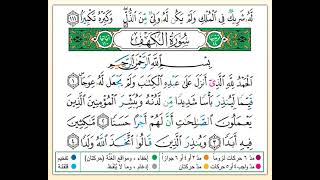 لَهُۥ شَرِيكٌ فِى ٱلْمُلْكِ وَلَمْ يَكُن لَّهُۥ وَلِىٌّ مِّنَ ٱلذُّلِّ ۖ وَكَبِّرْهُ تَكْبِيرًۢا ١١١
سُورَةُ الكَهْفِ
بِسْمِ ٱللَّهِ ٱلرَّحْمَٰنِ ٱلرَّحِيمِ
ٱلْحَمْدُ لِلَّهِ ٱلَّذِىٓ أَنزَلَ عَلَىٰ عَبْدِهِ ٱلْكِتَٰبَ وَلَمْ يَجْعَل لَّهُۥ عِوَجَا ١
قَيِّمًا لِّيُنذِرَ بَأْسًا شَدِيدًا مِّن لَّدُنْهُ وَيُبَشِّرَ ٱلْمُؤْمِنِينَ ٱلَّذِينَ
يَعْمَلُونَ ٱلصَّٰلِحَٰتِ أَنَّ لَهُمْ أَجْرًا حَسَنًا ٢ مَّٰكِثِينَ
فِيهِ أَبَدًا ٣ وَيُنذِرَ ٱلَّذِينَ قَالُوا۟ ٱتَّخَذَ ٱللَّهُ وَلَدًا ٤
مد ٦ حركات لزوماً مد ٢ أو ٤ أو ٦ جوازاً إخفاء، ومواقع الغنّة (حركتان) تفخيم
مد واجب ٤ أو ٥ حركات مد حركتان إدغام، وما لا يُلفظ قلقلة